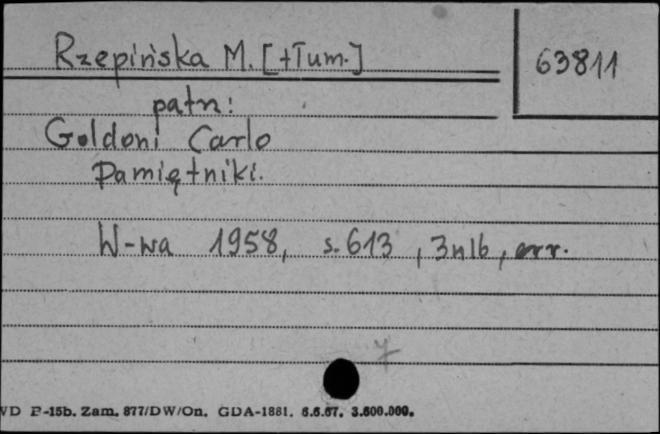 Rzepińska M. [tłum.]
63811
patrz:
Goldoni Carlo
Pamiętniki.
W-wa 1958, s. 613, 3nlb, err.
7
VD P-15b. Zam. 877/DW/On. GDA-1881. 6.6.67. 3.600.000.